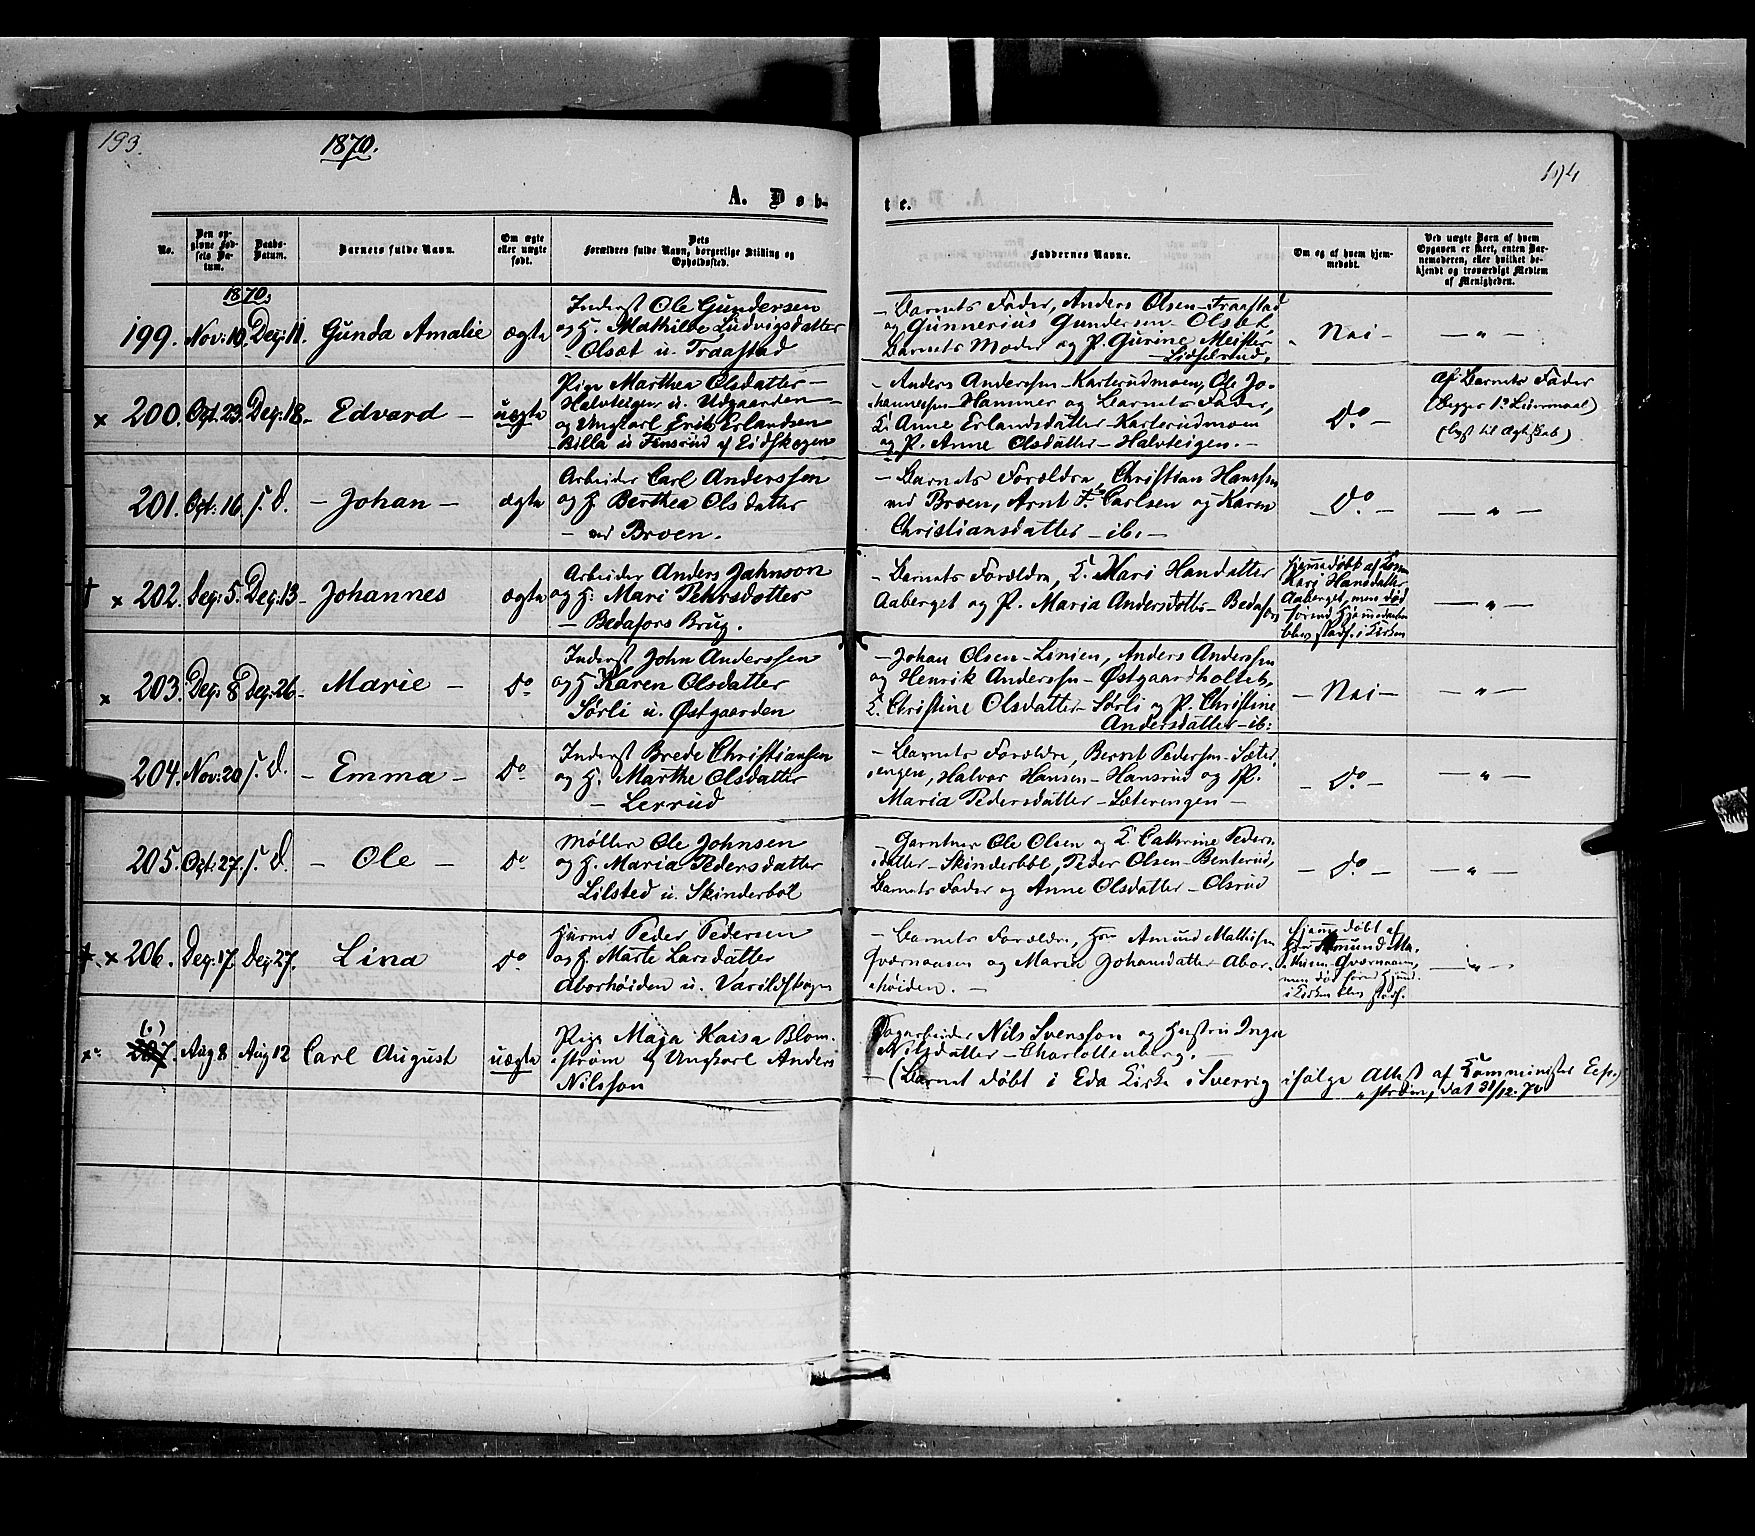 193.
1870.
194
A. Døb-
te.
No.
Den op-
givne Fød-
sels Da-
tum.
Daabs-
Datum.
Barnets fulde Navn.
Om ægte
eller uægte
født.
Dets
Forældres fulde Navn, borgerlige Stilling og
Opholdssted.
Faddernes Navne.
Om og af hvem hjem-
medøbt.
Ved uægte Børn af hvem
Opgaven er skeet, enten Bar-
nemoderen, eller hvilket be-
kjendt og troværdigt Medlem
af Menigheden.
1870.
199. Nov: 10. Dec: 11. Gunda Amalie ægte
Inderst Ole Gundersen
og H. Mathilde Ludvigsdatter
Olsæt u. Traastad
- Barnets Fader, Anders Olsen - Traastad
og Gunnerius Gundersen - Olsæt,
Barnets Moder og P. Gurine Meister
- Nei -
- " -
× 200. Oct. 23. Dec: 18. - Edvard - uægte
Pige Marthea Olsdatter -
Halvteigen u. Udgaarden -
og Ungkarl Erik Erlandsen
Billa u Finsrud af Eidskogen
- Anders Anderssen - Karterudmoen, Ole Jo-
hannessen - Hammer og Barnets Fader,
K. Anne Erlandsdatter - Karterudmoen
og P. Anne Olsdatter - Halvteigen. -
Do -
af Barnets Fader
(begges 1ste Leiermaal)
(lyst til Ægteskab)
201. Oct: 16. s. d. - Johan - ægte
Arbeider Carl Anderssen
og H. Berthea Olsdatter
- ved Broen.
- Barnets Forældre, Christian Hanssen
ved Broen, Arnt F. Carlsen og Karen
Christiansdatter - ib. -
- Do -
- " -
† × 202. Dec: 5. Dec: 13. - Johannes ægte
Arbeider Anders Jahnson
og H. Mari Pehrsdatter
- Bedafors Brug.
- Barnets Forældre, K. Mari Handatter
Aaberget og P. Maria Andersdatter - Bedafors
hjemmedøbt af Konen
Kari Hansdatter
Aaberget, men død
førend Hjemmedaaben
blev stadf. i Kirken
- " -
× 203. Dec: 8 Dec: 26 - Marie - Do
Inderst John Anderssen
og H. Karen Olsdatter
Sørli u. Østgaarden
- Johan Olsen - Linien, Anders Anderssen
og Henrik Anderssen - Østgaardholtet,
K. Christine Olsdatter - Sørli og P. Christine
Andersdatter - ib:
- Nei -
- " -
204. Nov: 20 s. d. - Emma - Do
Inderst Brede Christiansen
og H. Marthe Olsdatter
- Lerrud
- Barnets Forældre, Bernt Pedersen - Sæter-
engen, Halvor Hansen - Hansrud og P.
Maria Pedersdatter - Sæterengen -
- Do -
- " -
205. Oct: 27. s. d. - Ole - Do
Møller Ole Johnsen
og H. Maria Pedersdatter
Lilsted u. Skinderbøl
- Gartner Ole Olsen og K. Cathrine Peders-
datter - Skinderbøl, Peder Olsen - Benterud,
Barnets Fader og Anne Olsdatter - Olsrud
- Do -
- " -
† × 206. Dec: 17. Dec: 27. Lina Do
Huusmd Peder Pedersen
og H. Marte Larsdatter
Aborhøiden u. Varildskogen
- Barnets Forældre, Hm Amund Mathisen
Qværnaasen og Maren Johansdatter - Abor-
høiden. -
Hjemmedøbt af
Hm Amund Ma-
thisen - Qværnaasen,
men død førend Hjemmed.
i Kirken blev stadf.
- " -
207. Aug 8 Aug 12 Carl August uægte
Pige Maja Kaisa Blom-
strøm og Ungkarl Anders
Nilsson
Dagarbeider Nils Svensson og Hustru Inga
Nilsdatter - Charlottenberg. -
- (Barnet døbt i Eda Kirke i Sverrig ifølge Attest af Komminister Esp-
strøm, dat 31/12. 70